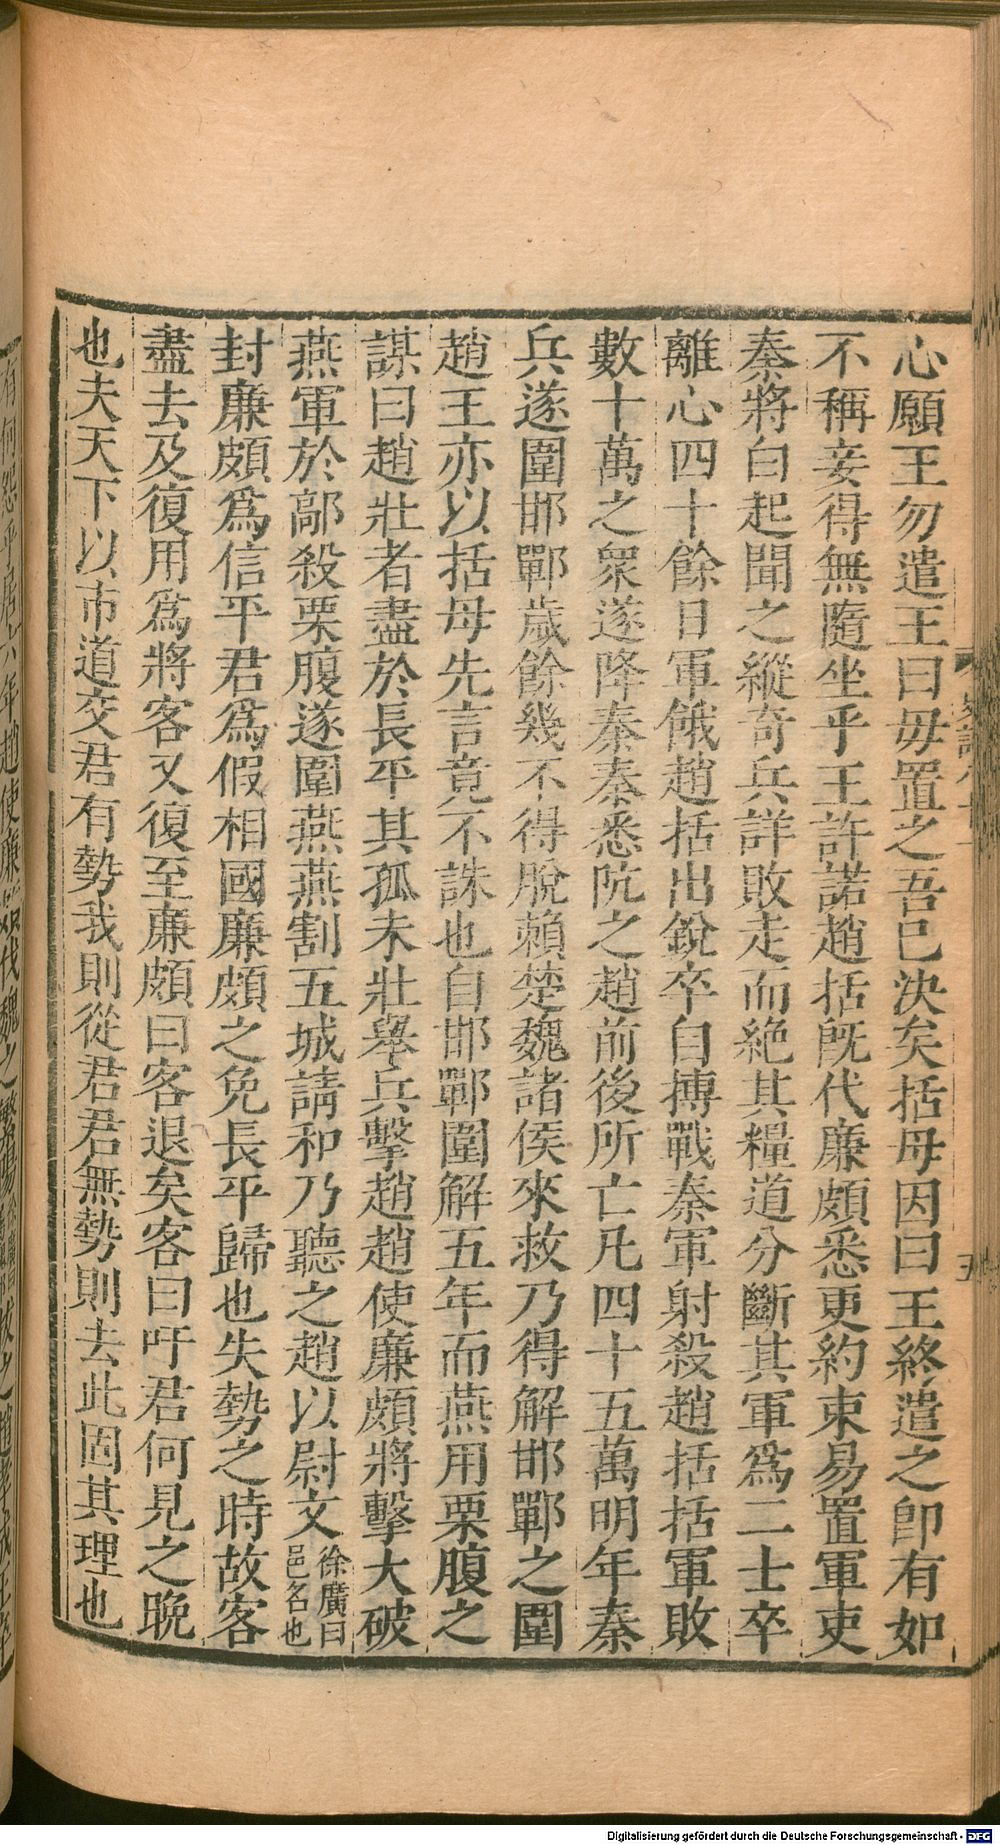 心願王勿遣王曰毋置之吾已決矣括母因曰王終遣之卽有如
不稱妾得無隨坐乎王許諾趙括旣代廉頗悉更約束易置軍吏
秦將白起聞之縱奇兵詳敗走而絶其糧道分斷其軍爲二士卒
離心四十餘日軍餓趙括出銳卒自搏戰秦軍射殺趙括括軍敗
數十萬之衆遂降秦秦悉阬之趙前後所亡凡四十五萬明年秦
兵遂圍邯鄲歲餘幾不得脫賴楚魏諸侯來救乃得解邯鄲之圍
趙王亦以括母先言竟不誅也自邯鄲圍解五年而燕用栗腹之
謀曰趙壯者盡於長平其孤未壯舉兵擊趙趙使廉頗將擊大破
燕軍於鄗殺栗腹遂圍燕燕割五城請和乃聽之趙以尉文徐廣曰邑名也
封廉頗爲信平君爲假相國廉頗之免長平歸也失勢之時故客
盡去及復用爲將客又復至廉頗曰客退矣客曰吁君何見之晚
也夫天下以市道交君有勢我則從君君無勢則去此固其理也
有何怨乎居六年趙使廉頗伐魏之繁陽
拔之趙孝成王卒
五
Digitalisierung gefördert durch die Deutsche Forschungsgemeinschaft - DFG